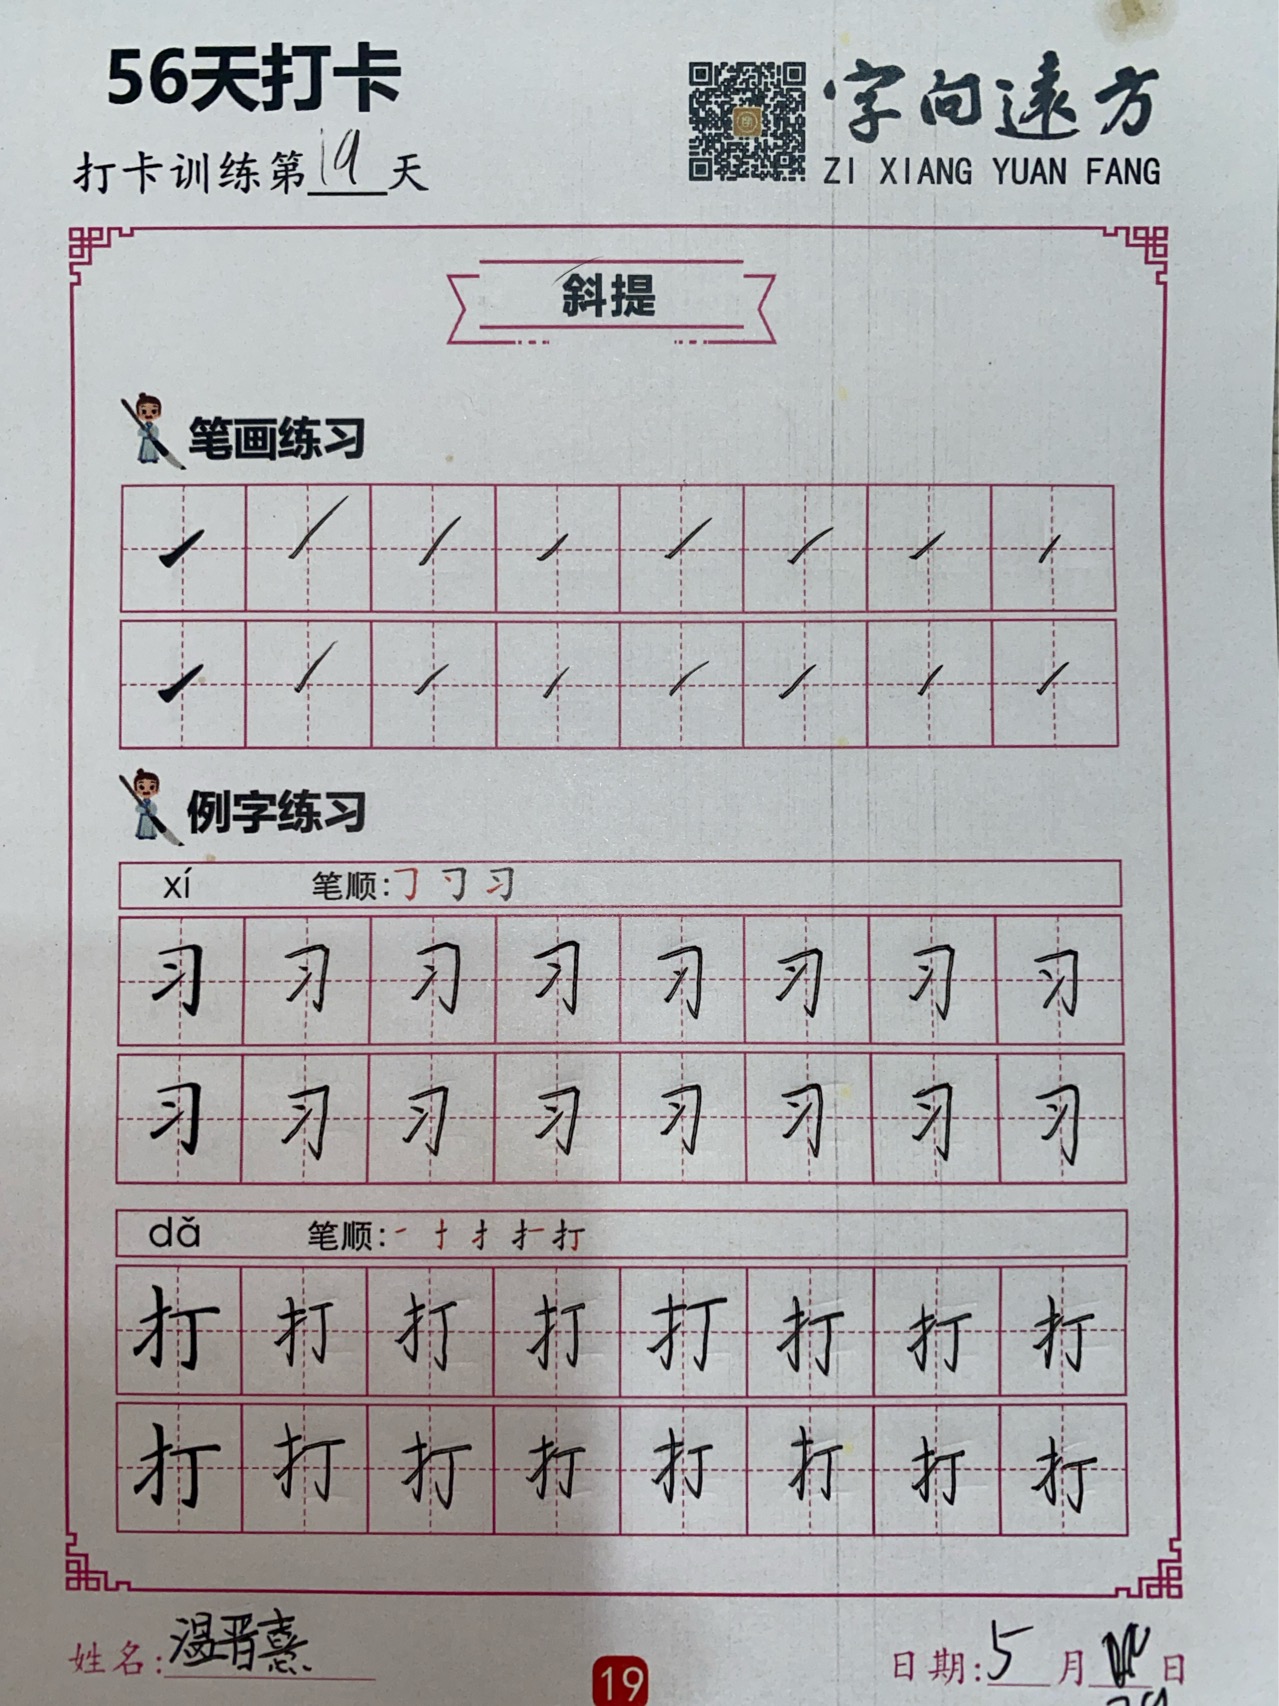 56天打卡
打卡训练第19天
字向遠方
ZI XIANG YUAN FANG
斜提
笔画练习
例字练习
xí 笔顺:
习 习 习 习 习 习 习 习
习 习 习 习 习 习 习 习
dǎ 笔顺:
打 打 打 打 打 打 打 打
打 打 打 打 打 打 打 打
姓名:温晋熹
19
日期:5月 日